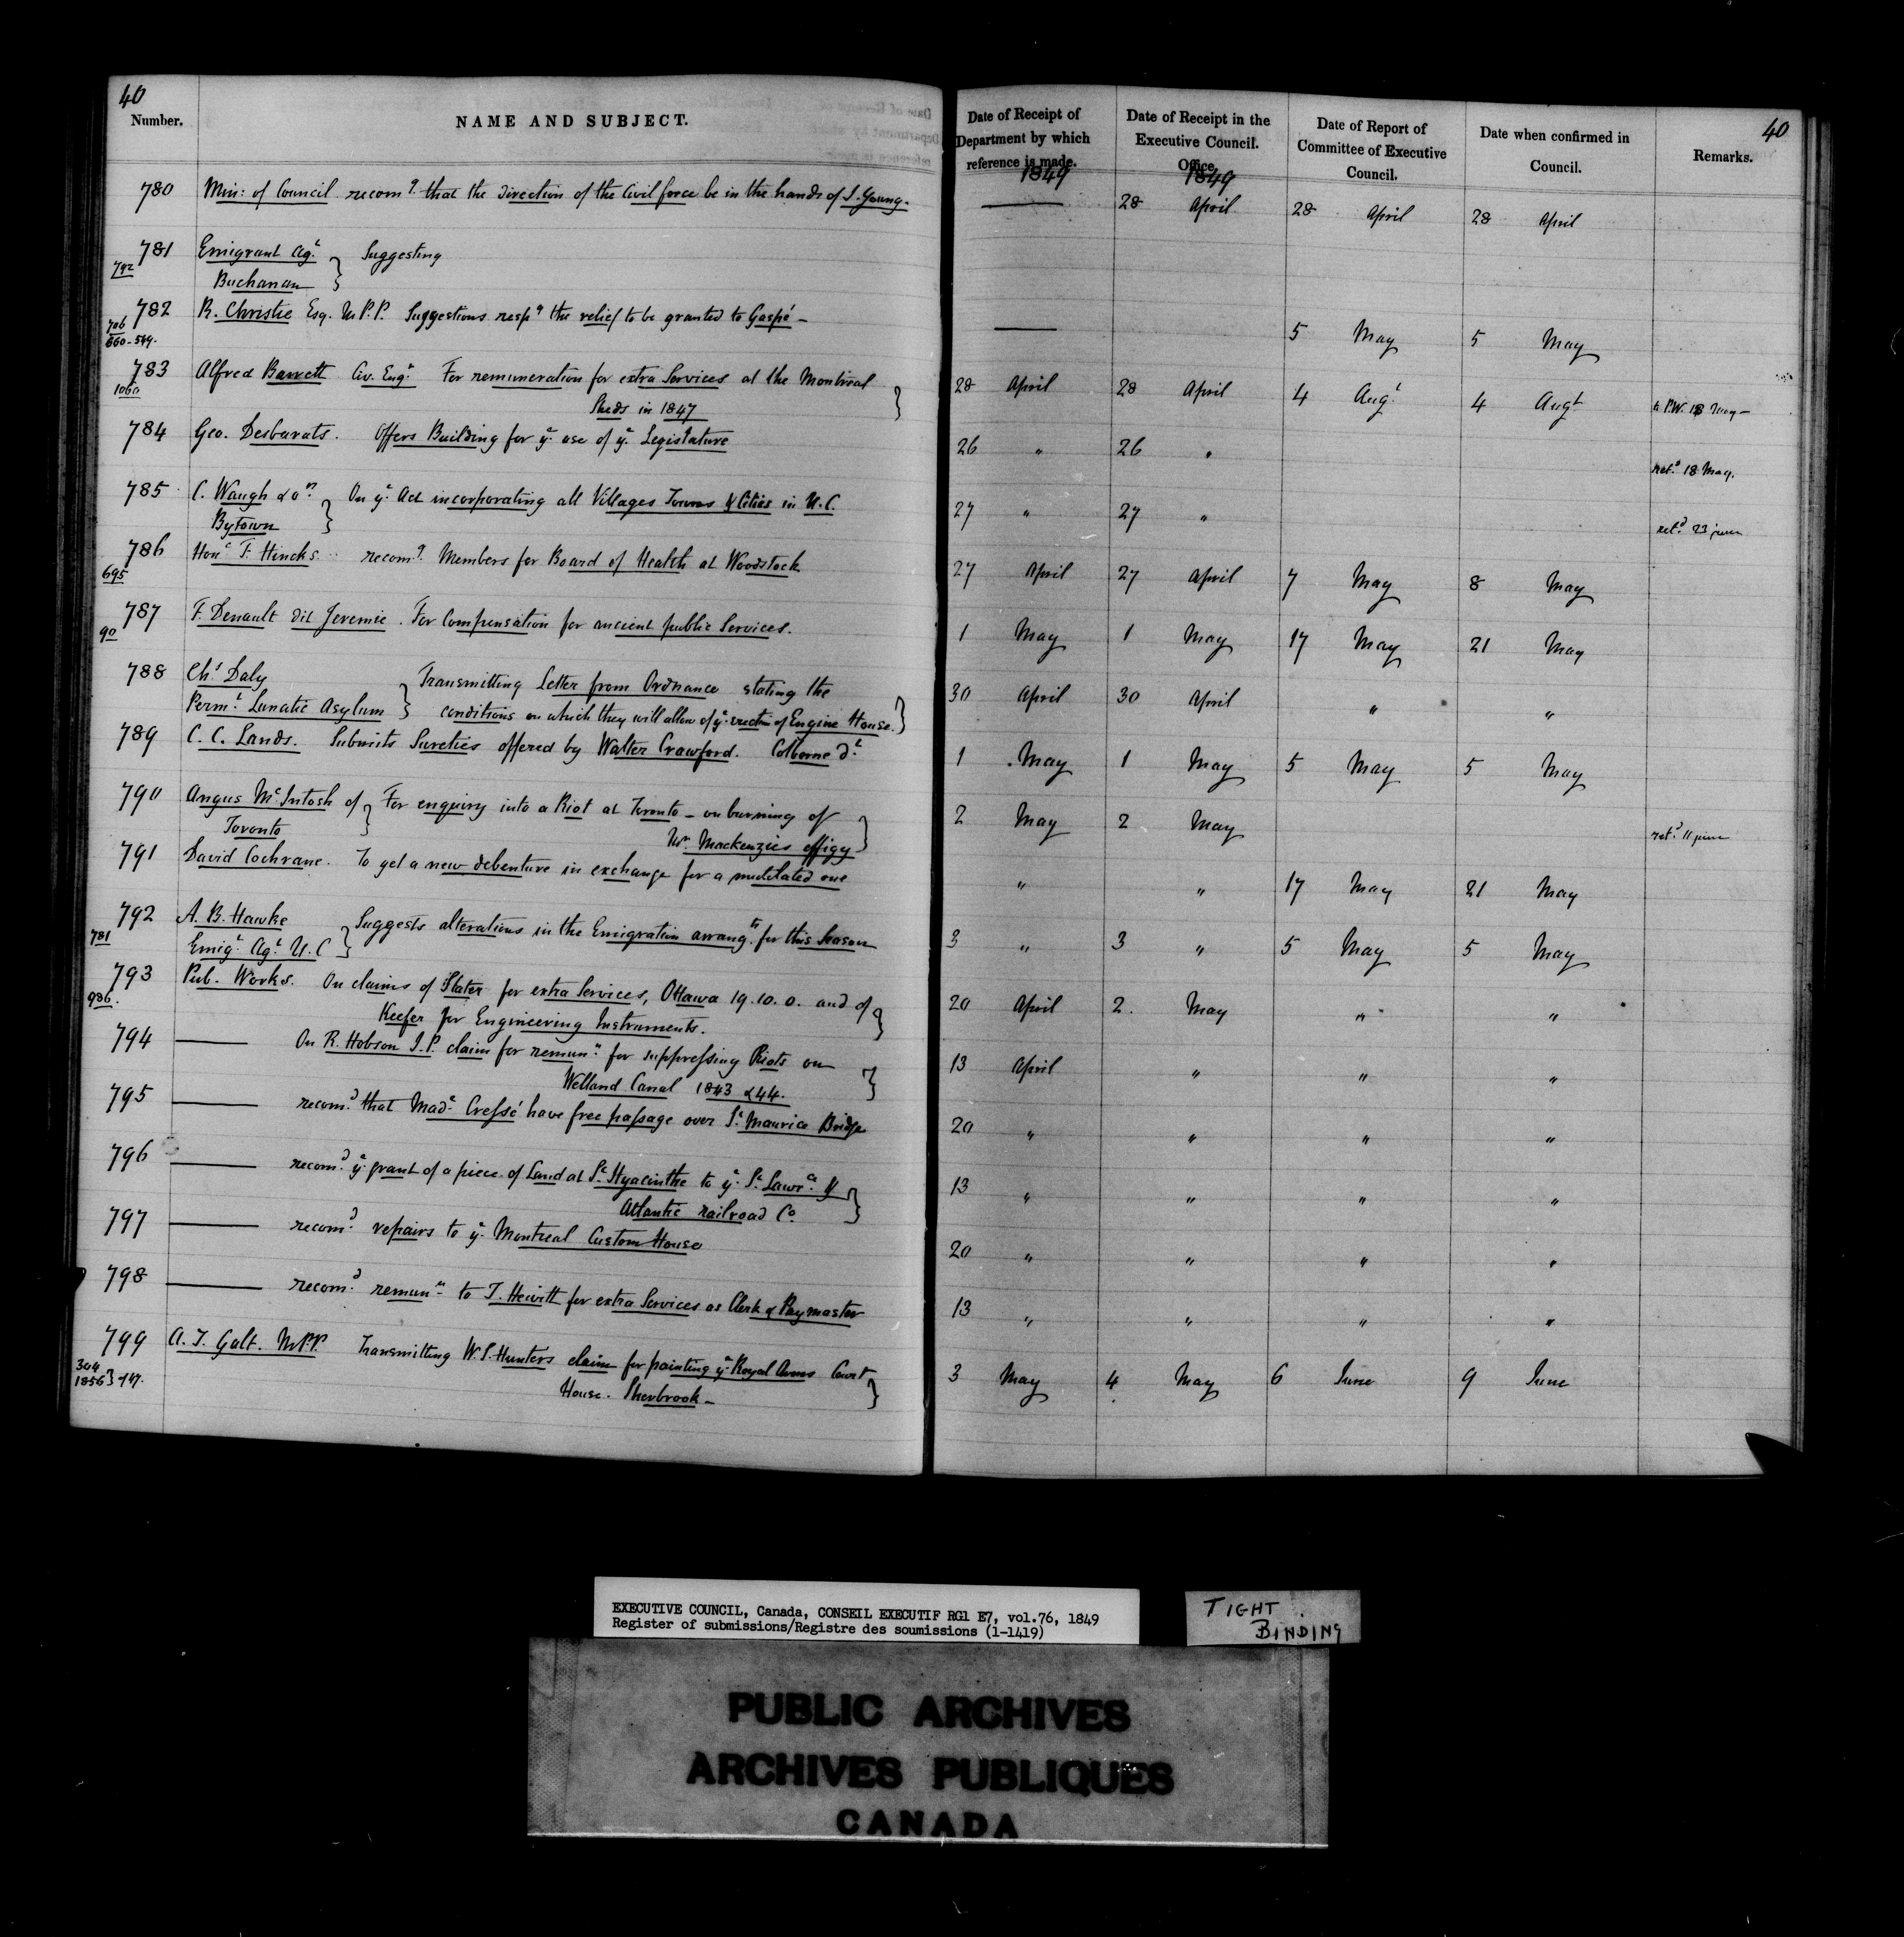 40
Number.
NAME AND SUBJECT.
780 Min: of Council recomg. that the direction of the Civil force be in the hands of J. Young.
781 Emigrant Agt. } Suggesting
792 Buchanan
782 R. Christie Esq. M.P.P. Suggestions respg the relief to be granted to Gaspé —
706
660-549.
783 Alfred Barrett Civ. Engr. For remuneration for extra Services at the Montreal }
1060 Sheds in 1847
784 Geo. Desbarats. Offers Building for ye. use of ye. Legislature
785 C. Waugh & on. } On ye. Act incorporating all Villages Towns & Cities in U.C.
Bytown
786 Hone F. Hincks recomg. Members for Board of Health at Woodstock
695
787 F. Denault dit Jeremie. For Compensation for ancient public Services.
90
788 Chs. Daly } Transmitting Letter from Ordnance stating the
Permt. Lunatic Asylum conditions on which they will allow of ye. erectn of Engine House. }
789 C. C. Lands. Submits Sureties offered by Walter Crawford. Colborne dt.
790 Angus McIntosh of } For enquiry into a Riot at Toronto — on burning of }
Toronto Mr. Mackenzies effigy
791 David Cochrane. To get a new debenture in exchange for a mutilated one
792 A. B. Hawke } Suggests alterations in the Emigration arrangts. for this Season
781 Emigt. Agt. U.C
793 Pub. Works. On claims of Slater for extra Services, Ottawa 19.10.0. and of }
936. Keefer for Engineering Instruments.
794 —— On R. Hobson J.P. claim for remunn. for suppressing Riots on }
Welland Canal 1843 & 44.
795 —— recomd. that Made. Cressé have free passage over St. Maurice Bridge
796 —— recomd. ye. grant of a piece of Land at St. Hyacinthe to ye. St. Lawrce. & }
Atlantic railroad Co.
797 —— recomd. repairs to ye. Montreal Custom House
798 —— recomd. remunn. to T. Hewitt for extra Services as Clerk & Paymaster
799 A. T. Galt. M.P.P. Transmitting W. S. Hunters claim for painting ye. Royal Arms Court }
304
1856 } -147. House. Sherbrook —
Date of Receipt of Department by which reference is made.
Date of Receipt in the Executive Council. Office.
Date of Report of Committee of Executive Council.
Date when confirmed in Council.
Remarks.
40
1849 1849
—— 28 April 28 April 28 April
—— 5 May 5 May
28 April 28 April 4 Augt 4 Augt to P.W. 18 May —
26 " 26 " retd. 18 May.
27 " 27 " retd. 23 june
27 April 27 April 7 May 8 May
1 May 1 May 17 May 21 May
30 April 30 April " "
1 May 1 May 5 May 5 May
2 May 2 May retd. 11 june
" " 17 May 21 May
3 " 3 " 5 May 5 May
20 April 2. May " "
13 April " " "
20 " " " "
13 " " " "
20 " " " "
13 " " " "
3 May 4 May 6 June 9 June
EXECUTIVE COUNCIL, Canada, CONSEIL EXECUTIF RG1 E7, vol.76, 1849
Register of submissions/Registre des soumissions (1-1419)
TIGHT
BINDING
PUBLIC ARCHIVES
ARCHIVES PUBLIQUES
CANADA